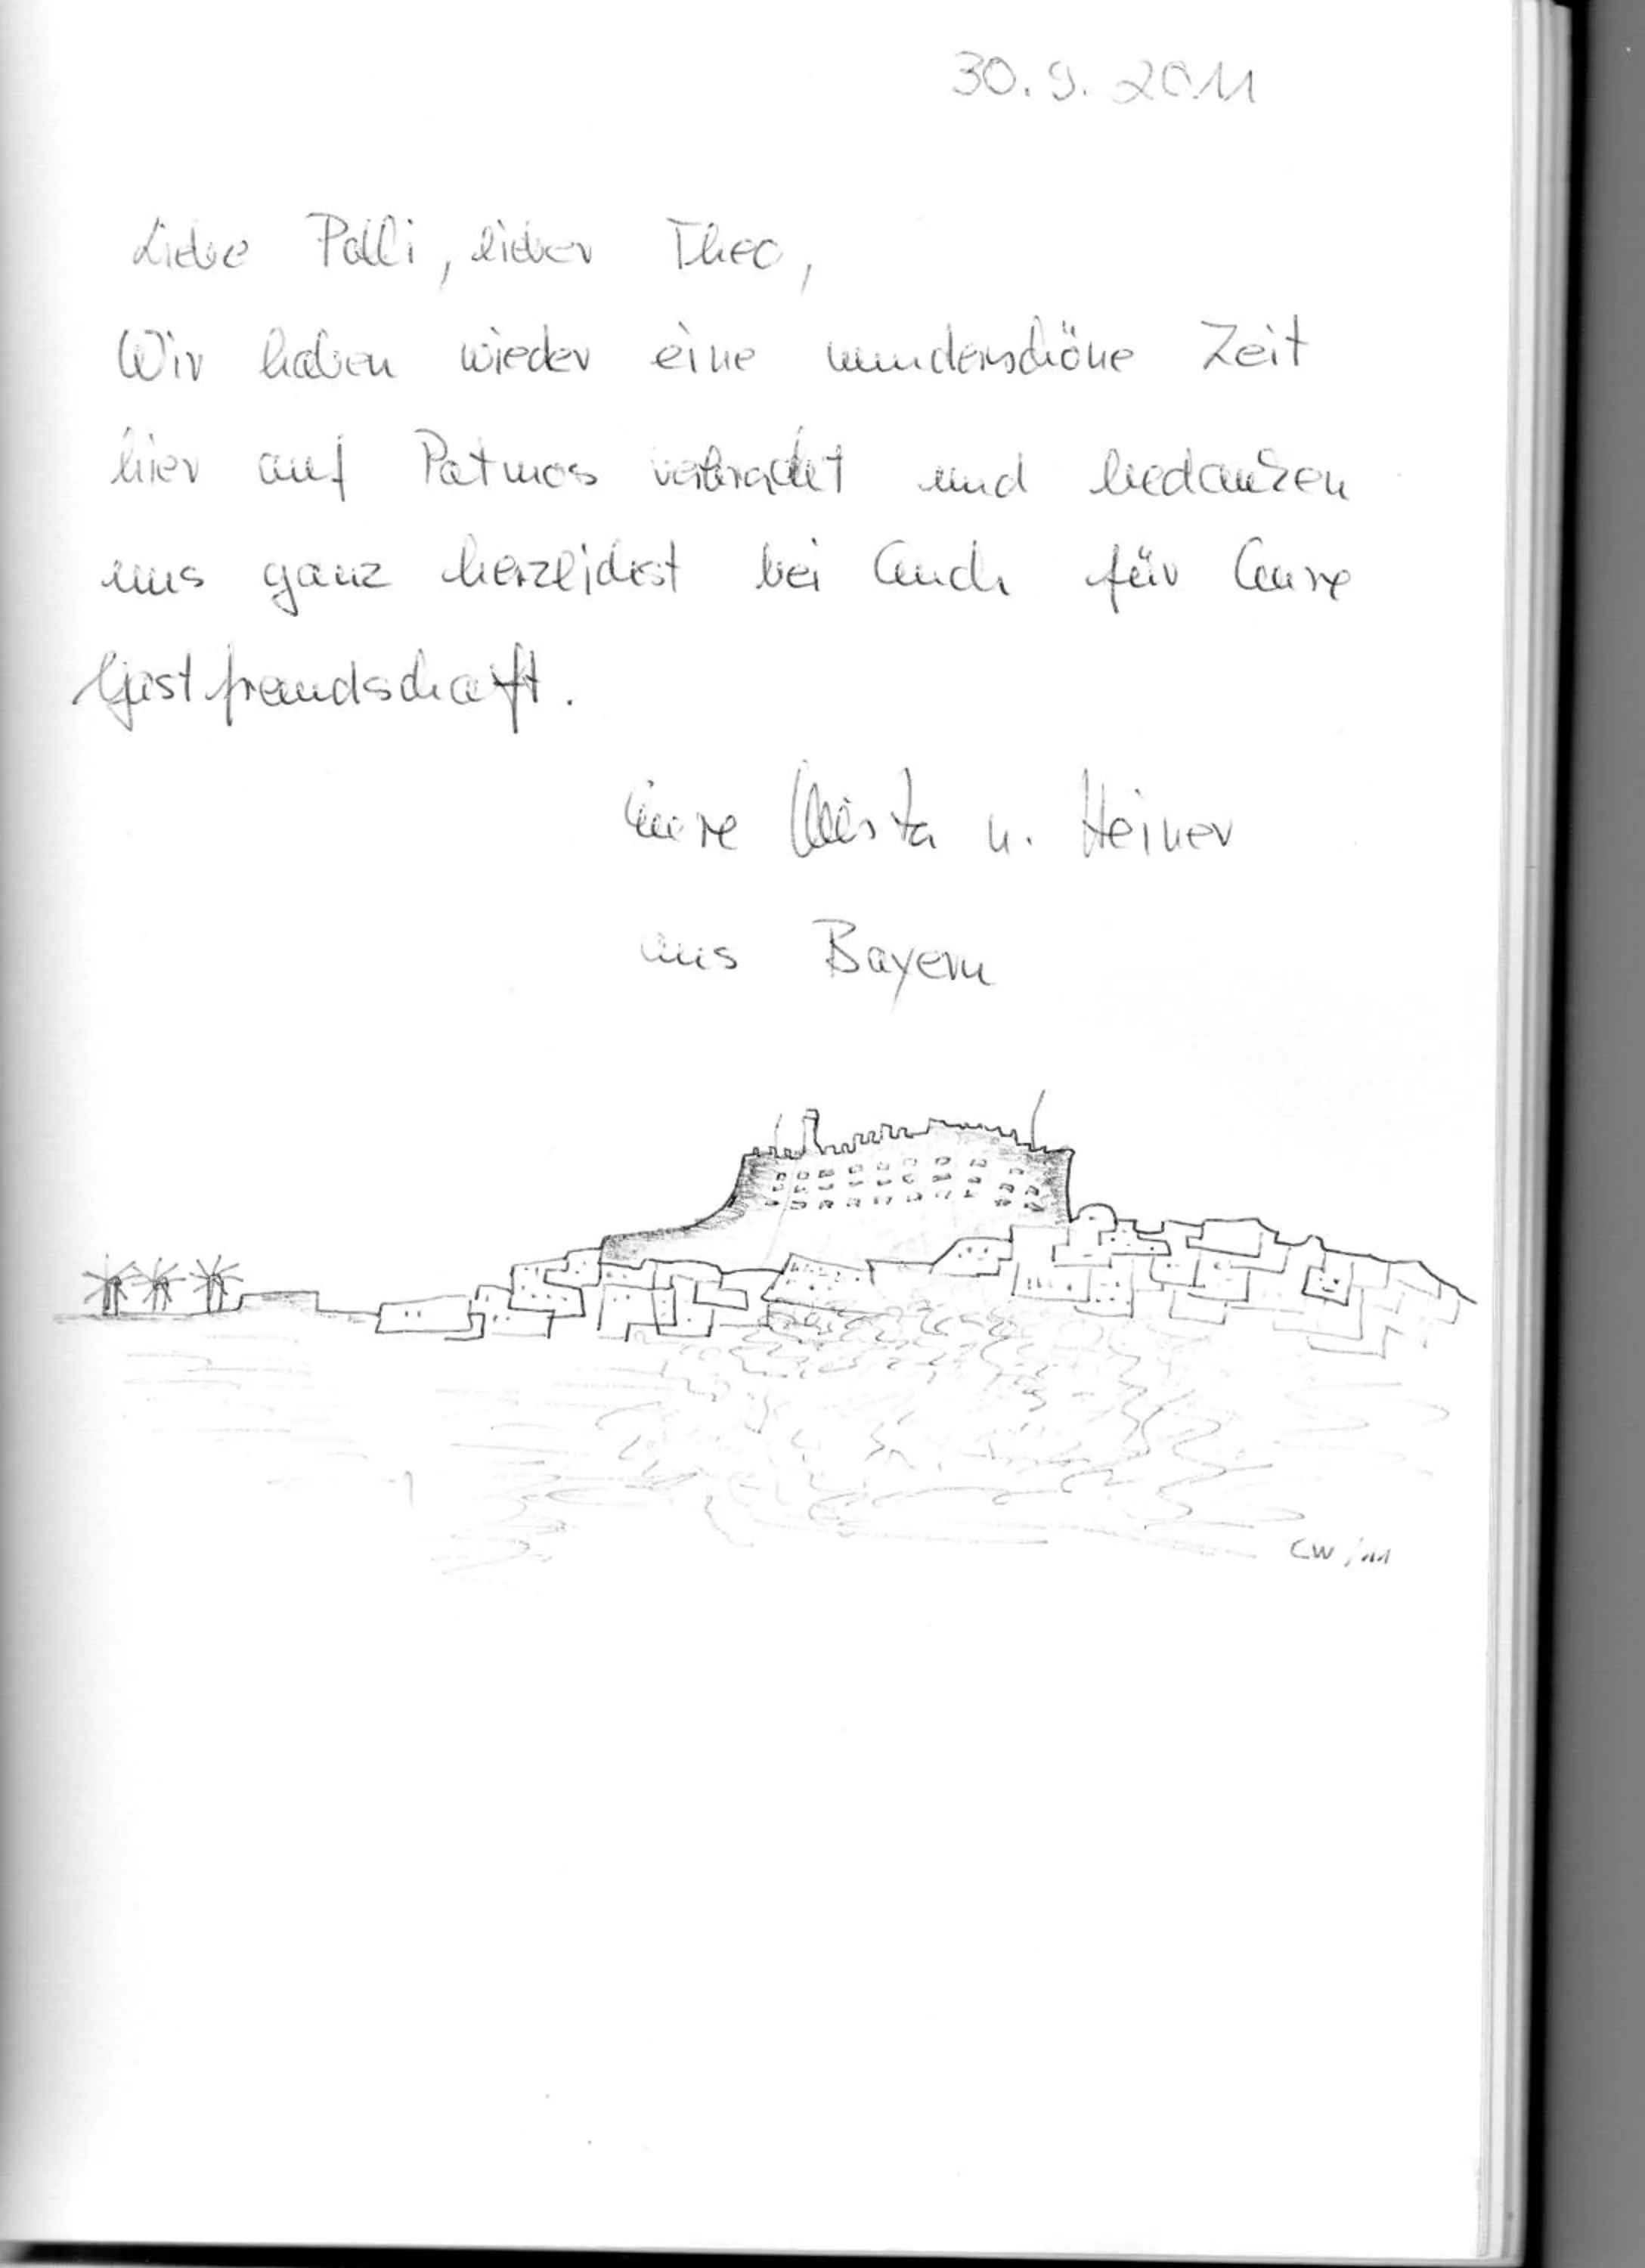 30.9.2011
Liebe Palli, lieber Theo,
Wir haben wieder eine wunderschöne Zeit
hier auf Patmos verbracht und bedanken
uns ganz herzlichst bei Euch für Eure
Gastfreundschaft.
Eure Christa u. Heiner
aus Bayern
CW/11